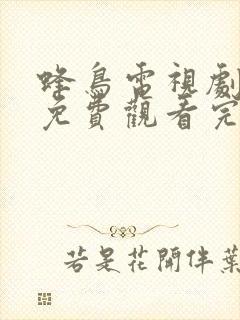 蜂鳥電視劇
免費觀看完
若是花開伴葉